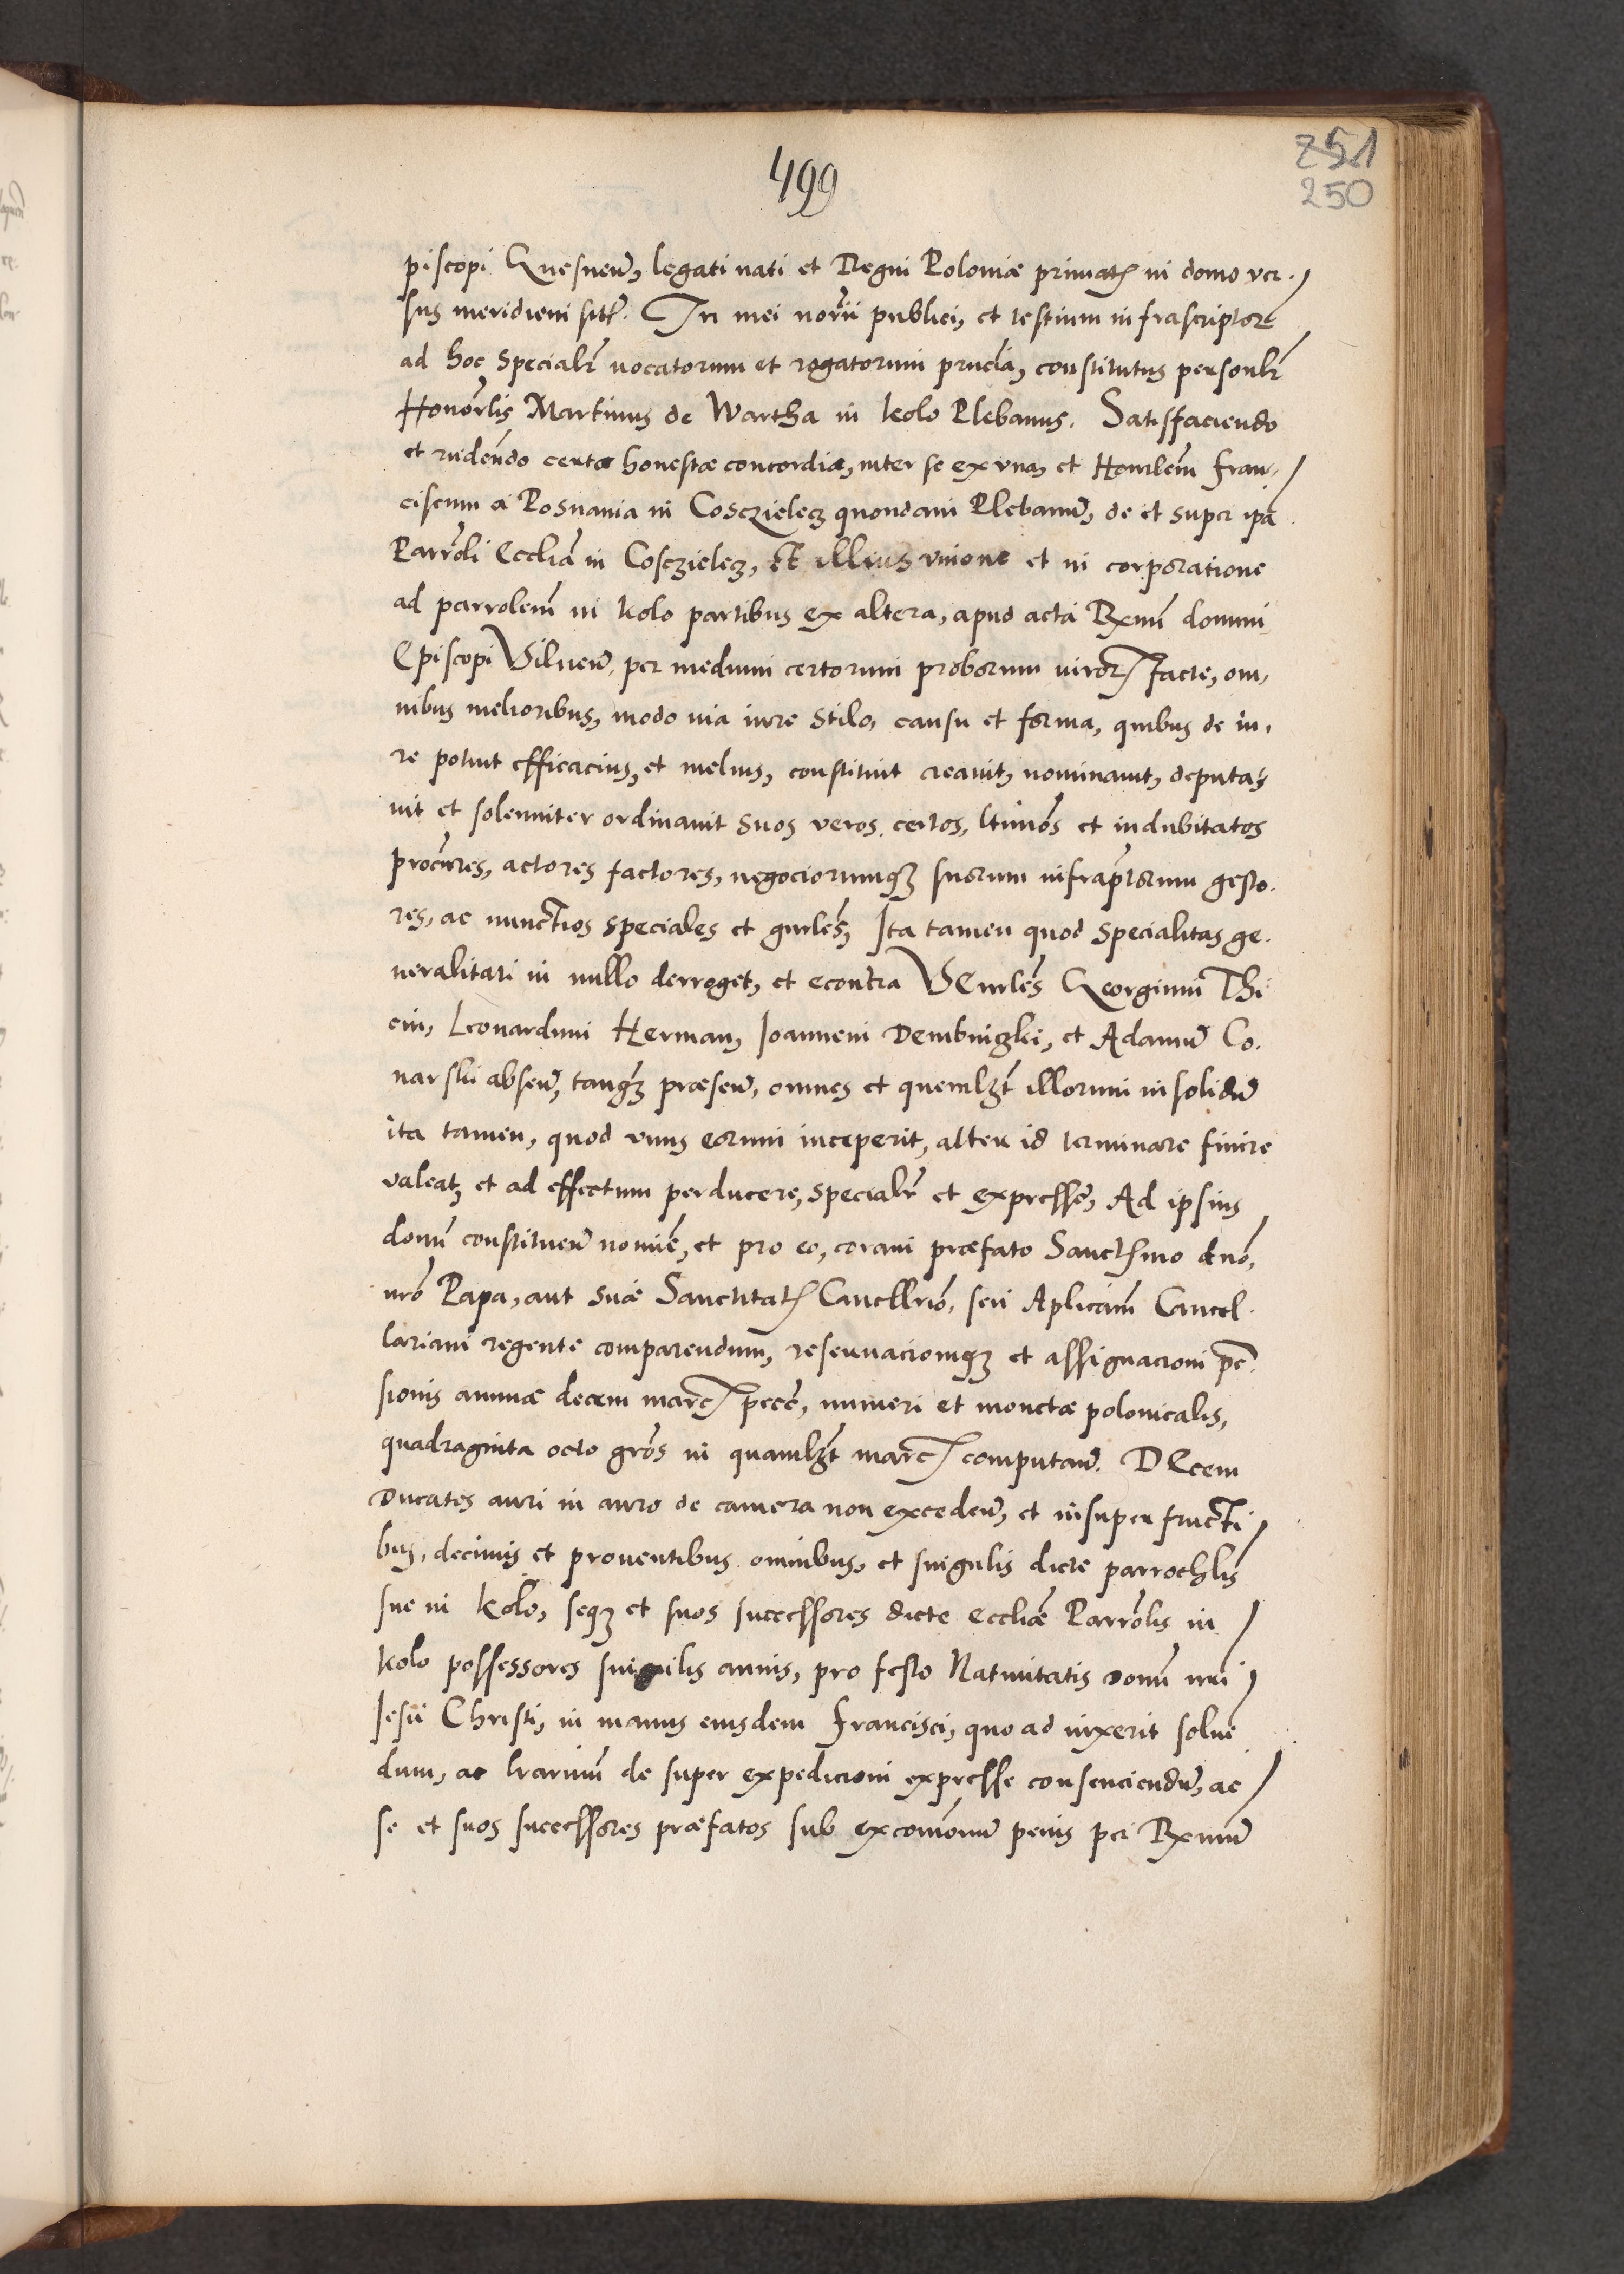 499
251
250
piscopi Gnesnen̄, legati nati et Regni Poloniæ primatꝭ in domo ver-
sus meridiem sitꝭ. In mei norii publici, et testium infrascriptorꝭ
ad hoc specialr̄ vocatorum et rogatorum prn̄cia, constitutus personlr̄
Honorlis Martinus de Wartha in Kolo Plebanus. Satisfaciendo
et rn̄dendo certæ honestæ concordiæ, inter se ex vna, et Honorlem Fran-
ciscum a Posnania in Cosczielecz quondam Plebanum̄, de et super ipa
Parroli Ecclīa in Cosczielecz, Et illius vnione et in corporatione
ad parrolem in Kolo partibus ex altera, apud acta Rxmi domini
Episcopi Vilnen̄, per medium certorum proborum virorꝭ facte, om-
nibus melioribus, modo via iure stilo, causu et forma, quibus de iu-
re potuit efficacius, et melius, constituit creauit, nominauit, deputa-
uit et solenniter ordinauit suos veros, certos, ltimos et indubitatos
procures, actores factores, negociorumqꝫ suorum infrapr̄torum gesto-
res, ac nunctios speciales et gnrles, Ita tamen quod specialitas ge-
neralitati in nullo derroget, et econtra Venrles Georgium Thi
cin, Leonardum Herman, Ioannem Dembniczki, et Adamū Co-
narski absen̄, tanqꝫ præsen̄, omnes et quemlꝫt illorum in solidū
ita tamen, quod vnus eorum inceperit, alter id terminare finire
valeat, et ad effectum perducere, specialr̄ et expresse, Ad ipsius
domī constituen̄ nomīe, et pro eo, coram præfato Sanctꝭmo dno,
nro Papa, aut suæ Sanctitatꝭ Cancellrio, seu Aplicam Cancel-
lariam regente comparendum, reseruacionīqꝫ et assignacioni pē-
sionis annuæ decem marcꝭ pecc̄, numeri et monetæ polonicalis,
quadraginta octo gros in quamlꝫt marcꝭ computan̄. Decem
Ducates auri in auro de camera non exceden̄, et insuper fructi
bus, decimis et prouentibus omnibus, et singulis dicte parrochlis
sue in Kolo, seqꝫ et suos successores dicte eccliæ Parrolis in
Kolo possessores singulis annis, pro festo Natiuitatis domī nri
Iesu Christi, in manus eiusdem Francisci, quo ad vixerit soluē
dum, ac lrarum de super expedicioni expresse consenciendū, ac
se et suos successores præfatos sub excomonū penis per Rxmum